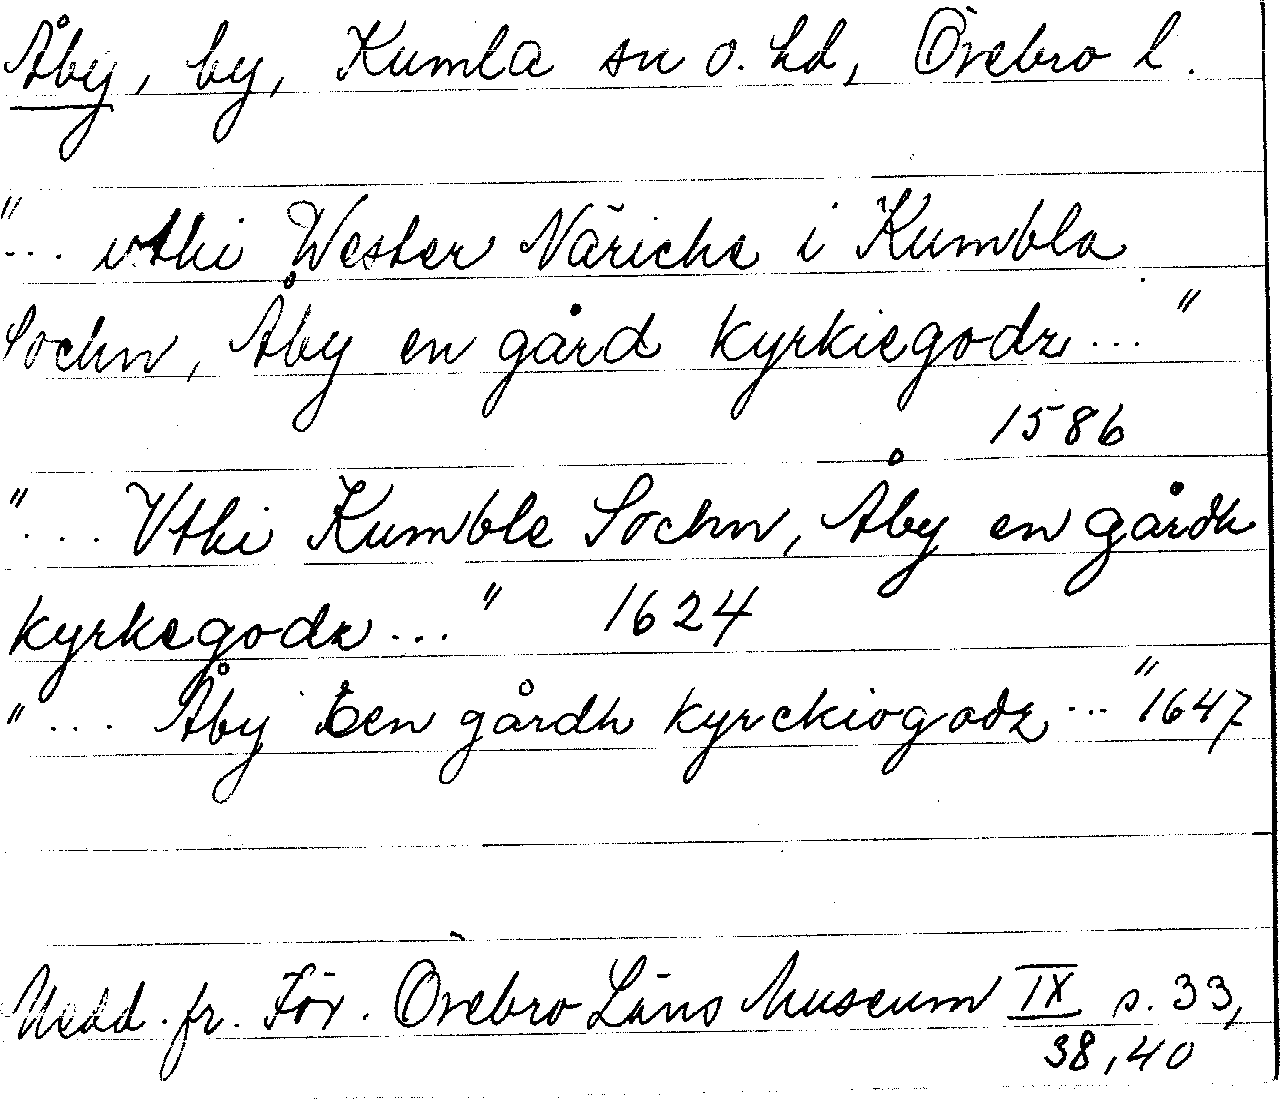 Åby, by, Kumla sn o. hd, Örebro l.
"... vthi Wester Näriche i Kumbla
Sochn, Åby en gård kyrkiegodz..."
1586
"... Vthi Kumble Sochn, Åby en gårdh
kyrkegodz..." 1624
"... Åby een gårdh kyrckiogodz..." 1647
Medd. fr. För. Örebro Läns Museum IX s. 33,
38, 40